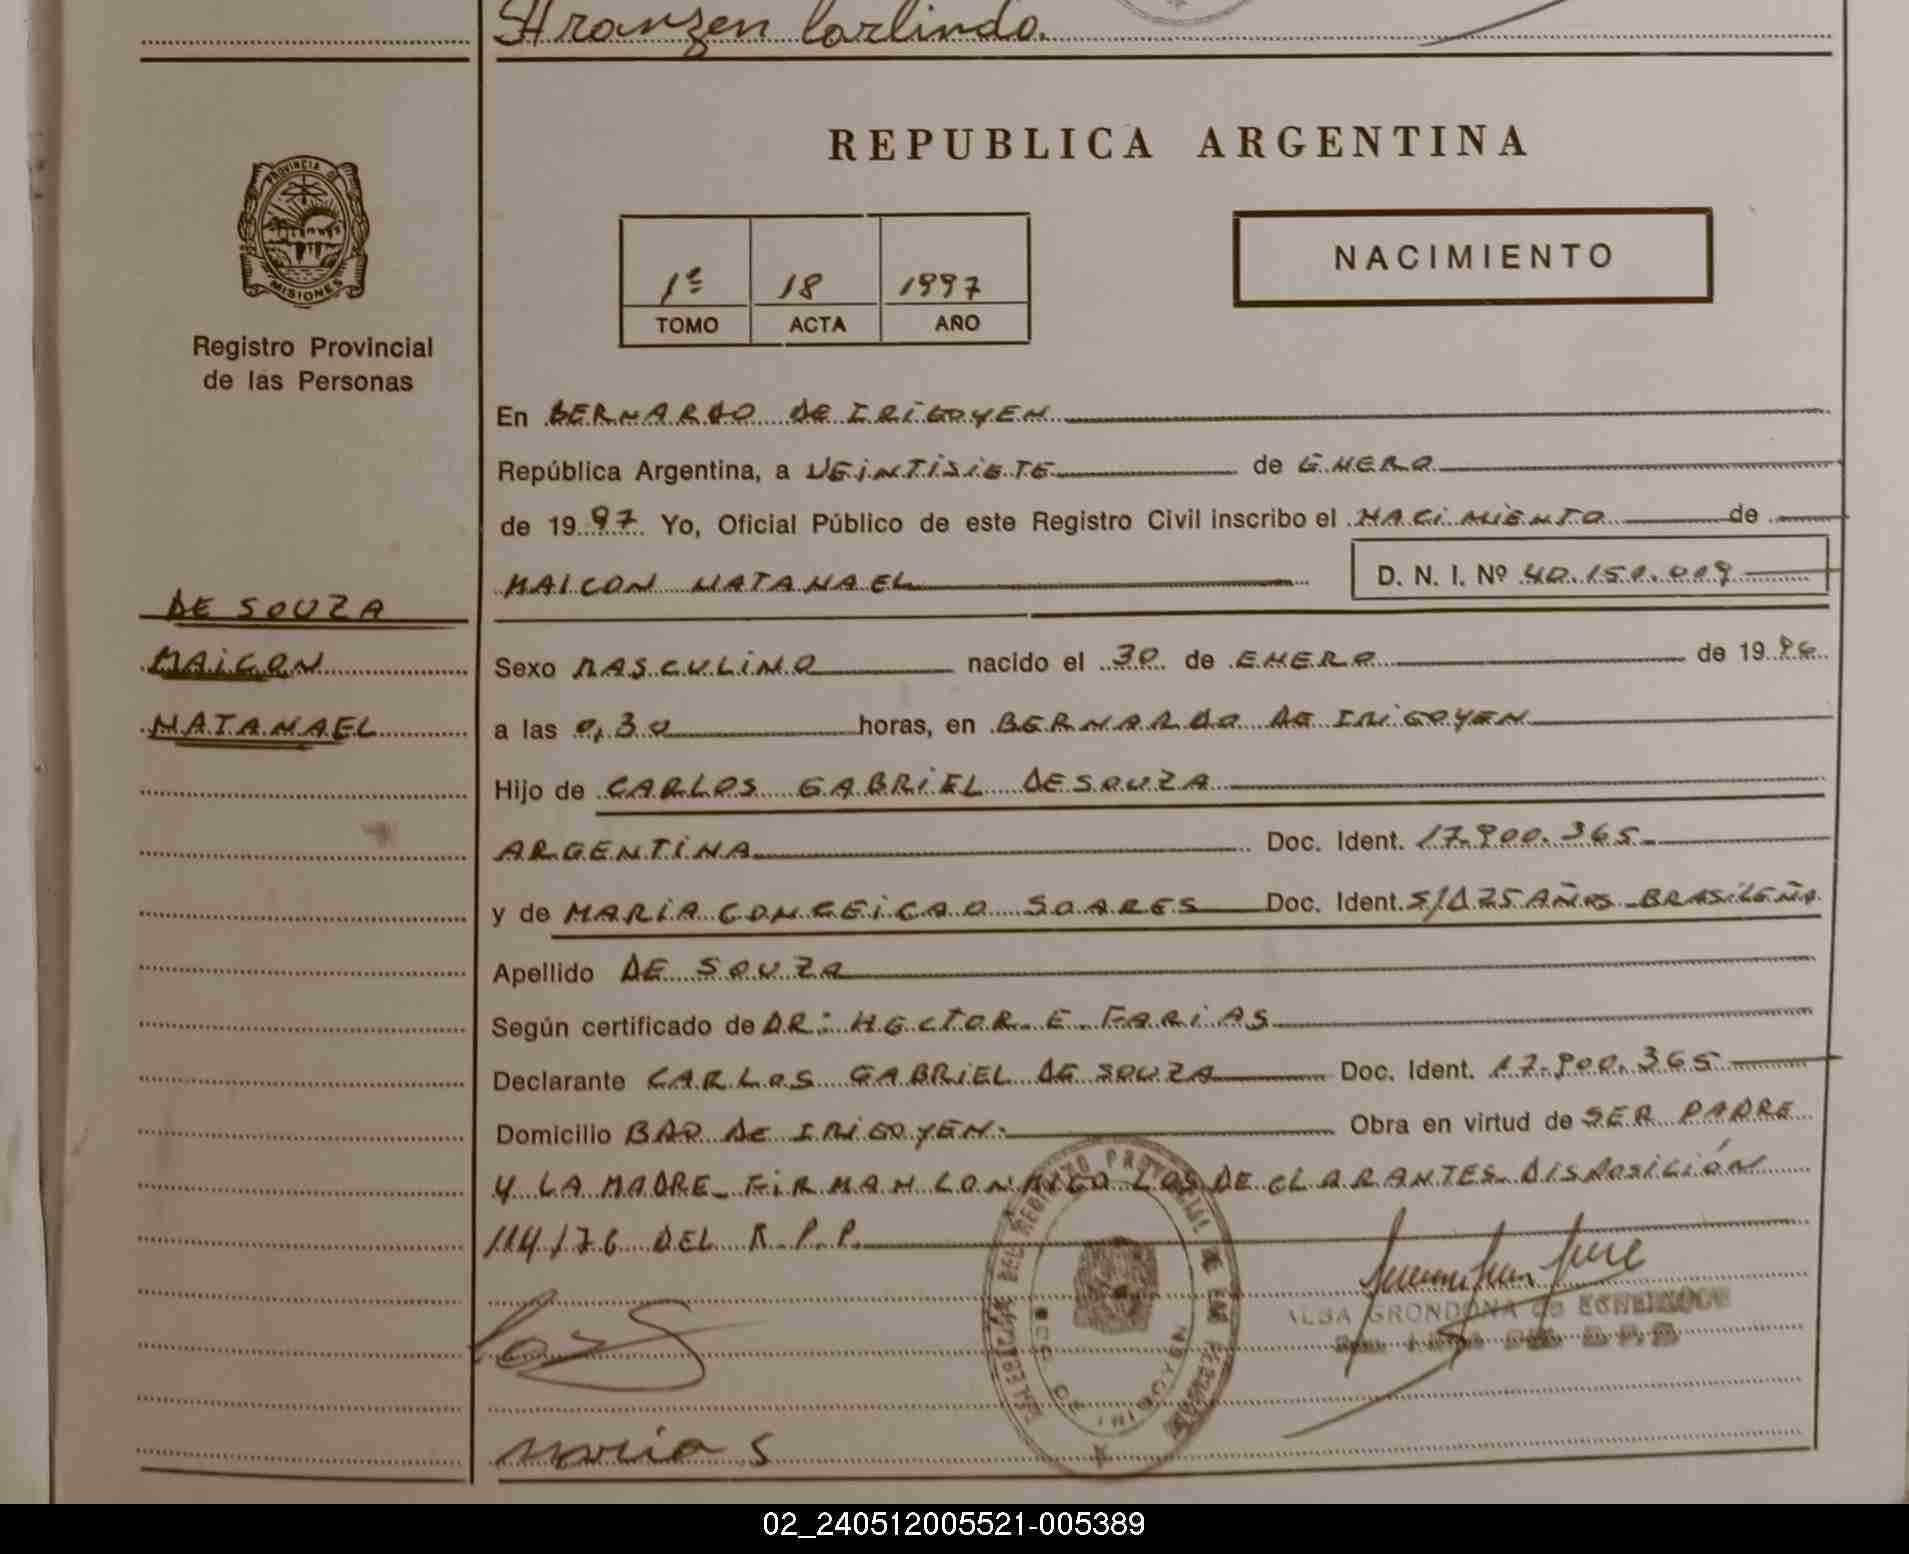 Franzen Carlindo.
REPUBLICA ARGENTINA
PROVINCIA DE
MISIONES
1º 18 1997
TOMO ACTA AÑO
NACIMIENTO
Registro Provincial
de las Personas
En BERNARDO DE IRIGOYEN
República Argentina, a VEINTISIETE de ENERO
de 1997 Yo, Oficial Público de este Registro Civil inscribo el NACIMIENTO de
MAICON NATANAEL D. N. I. Nº 40.151.019
DE SOUZA
MAICON
NATANAEL
Sexo MASCULINO nacido el 30 de ENERO de 1996
a las 0,30 horas, en BERNARDO DE IRIGOYEN
Hijo de CARLOS GABRIEL DE SOUZA
ARGENTINA Doc. Ident. 17.900.365
y de MARIA CONCEICAO SOARES Doc. Ident. S/D 25 AÑOS BRASILEÑA
Apellido DE SOUZA
Según certificado de DR: HECTOR E FARIAS
Declarante CARLOS GABRIEL DE SOUZA Doc. Ident. 17.900.365
Domicilio BDO DE IRIGOYEN Obra en virtud de SER PADRE
Y LA MADRE FIRMAN CONMIGO LOS DECLARANTES DISPOSICIÓN
114/76 DEL R.P.P.
ALBA GRONDONA de
maria S
02_240512005521-005389